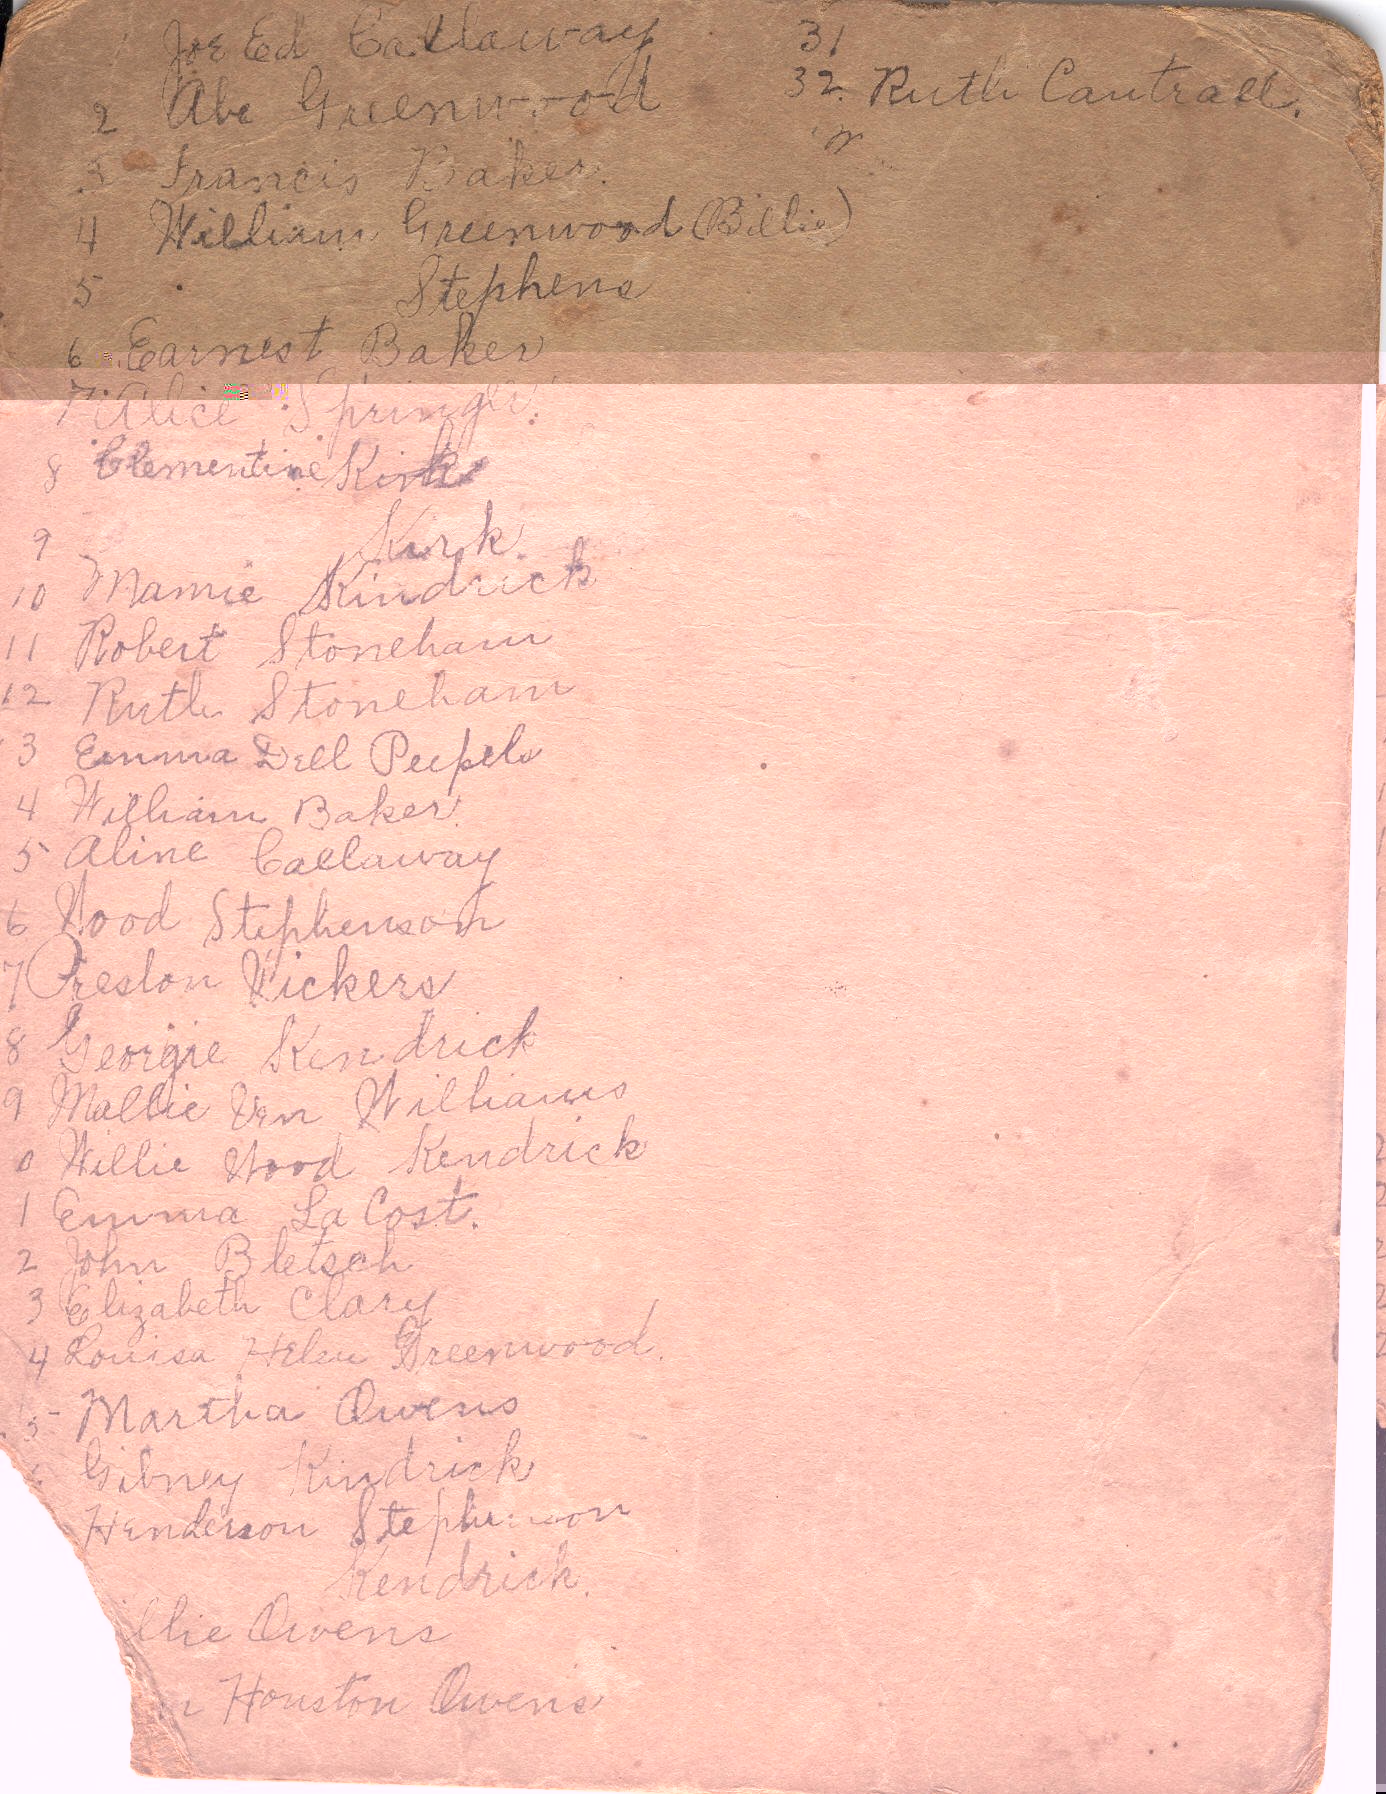 1 Joe Ed Callaway
2 Abe Greenwood
3 Francis Baker.
4 William Greenwood (Billie)
5 Stephens
6 Earnest Baker
7 Alice Springer.
8 Clementine Kirk
9 Kirk.
10 Mamie Kindrick
11 Robert Stoneham
12 Ruth Stoneham
3 Emma Dell Peepels
4 William Baker.
5 Aline Callaway
6 Wood Stephenson
7 Preston Vickers
8 Georgie Kendrick
9 Mallie Van Williams
0 Willie Wood Kendrick
1 Emma La Cost.
2 John Bletsch
3 Elizabeth Clary
4 Louisa Helen Greenwood.
5 Martha Owens
Gibney Kindrick
Henderson Stephenson
Kendrick.
llie Owens
n Houston Owens
31
32. Ruth Cantrall.